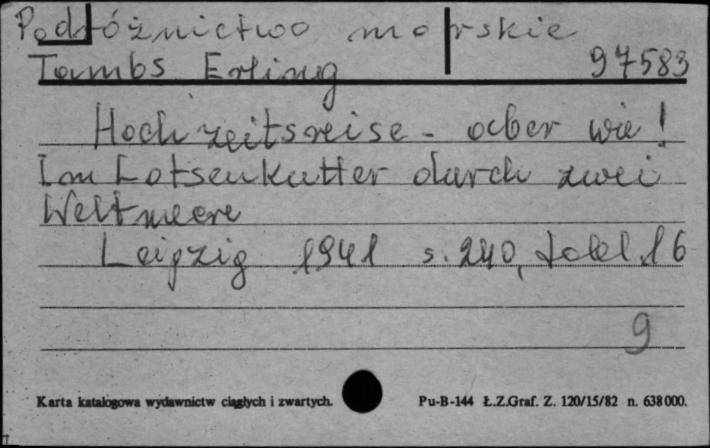 Podróżnictwo morskie
Tambs Erling 97583
Hochzeitsreise - aber wie!
Im Lotsenkutter durch zwei
Weltmeere
Leipzig 1941 s. 240, tabl. 16
9
Karta katalogowa wydawnictw ciągłych i zwartych. Pu-B-144 Ł.Z.Graf. Z. 120/15/82 n. 638000.